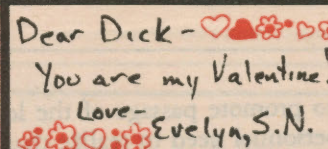 Dear Dick-
You are my Valentine!
Love-
Evelyn, S.N.